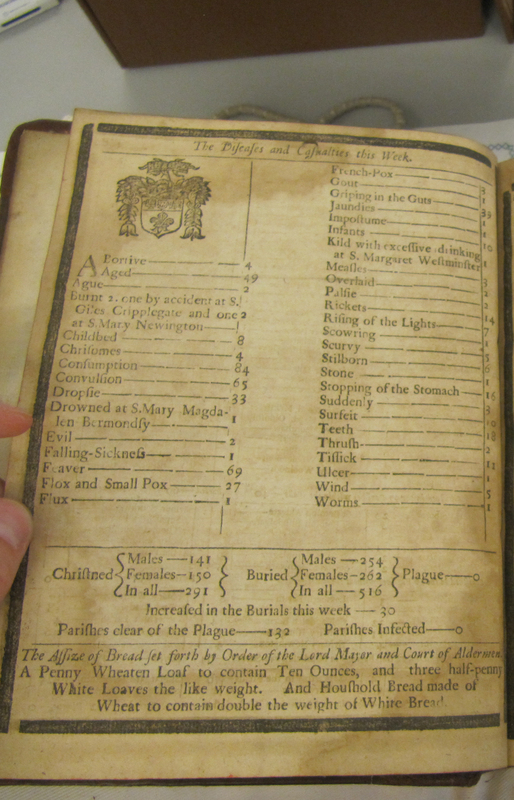 The Diseases and Casualties this Week.
ABortive — 4
Aged — 49
Ague — 2
Burnt 2. one by accident at S.
Giles Cripplegate and one 2
at S. Mary Newington —
Childbed — 8
Chrisomes — 4
Consumption — 84
Convulsion — 65
Dropsie — 33
Drowned at S. Mary Magda-
len Bermondsy — 1
Evil — 2
Falling-Sickness — 1
Feaver — 69
Flox and Small Pox — 27
Flux — 1
French-Pox — 3
Gout — 1
Griping in the Guts — 39
Jaundies
Impostume
Infants — 10
Kild with excessive drinking
at S. Margaret Westminster 1
Measles
Overlaid
Palsie
Rickets
Rising of the Lights — 14
Scowring — 7
Scurvy
Stilborn
Stone
Stopping of the Stomach — 16
Suddenly
Surfeit
Teeth
Thrush
Tissick
Ulcer — 1
Wind — 5
Worms — 1
Christned { Males — 141 Females — 150 In all — 291 }
Buried { Males — 254 Females — 262 In all — 516 } Plague — 0
Increased in the Burials this week — 30
Parishes clear of the Plague — 132 Parishes Infected — 0
The Assize of Bread set forth by Order of the Lord Mayor and Court of Aldermen.
A Penny Wheaten Loaf to contain Ten Ounces, and three half-penny
White Loaves the like weight. And Houshold Bread made of
Wheat to contain double the weight of White Bread